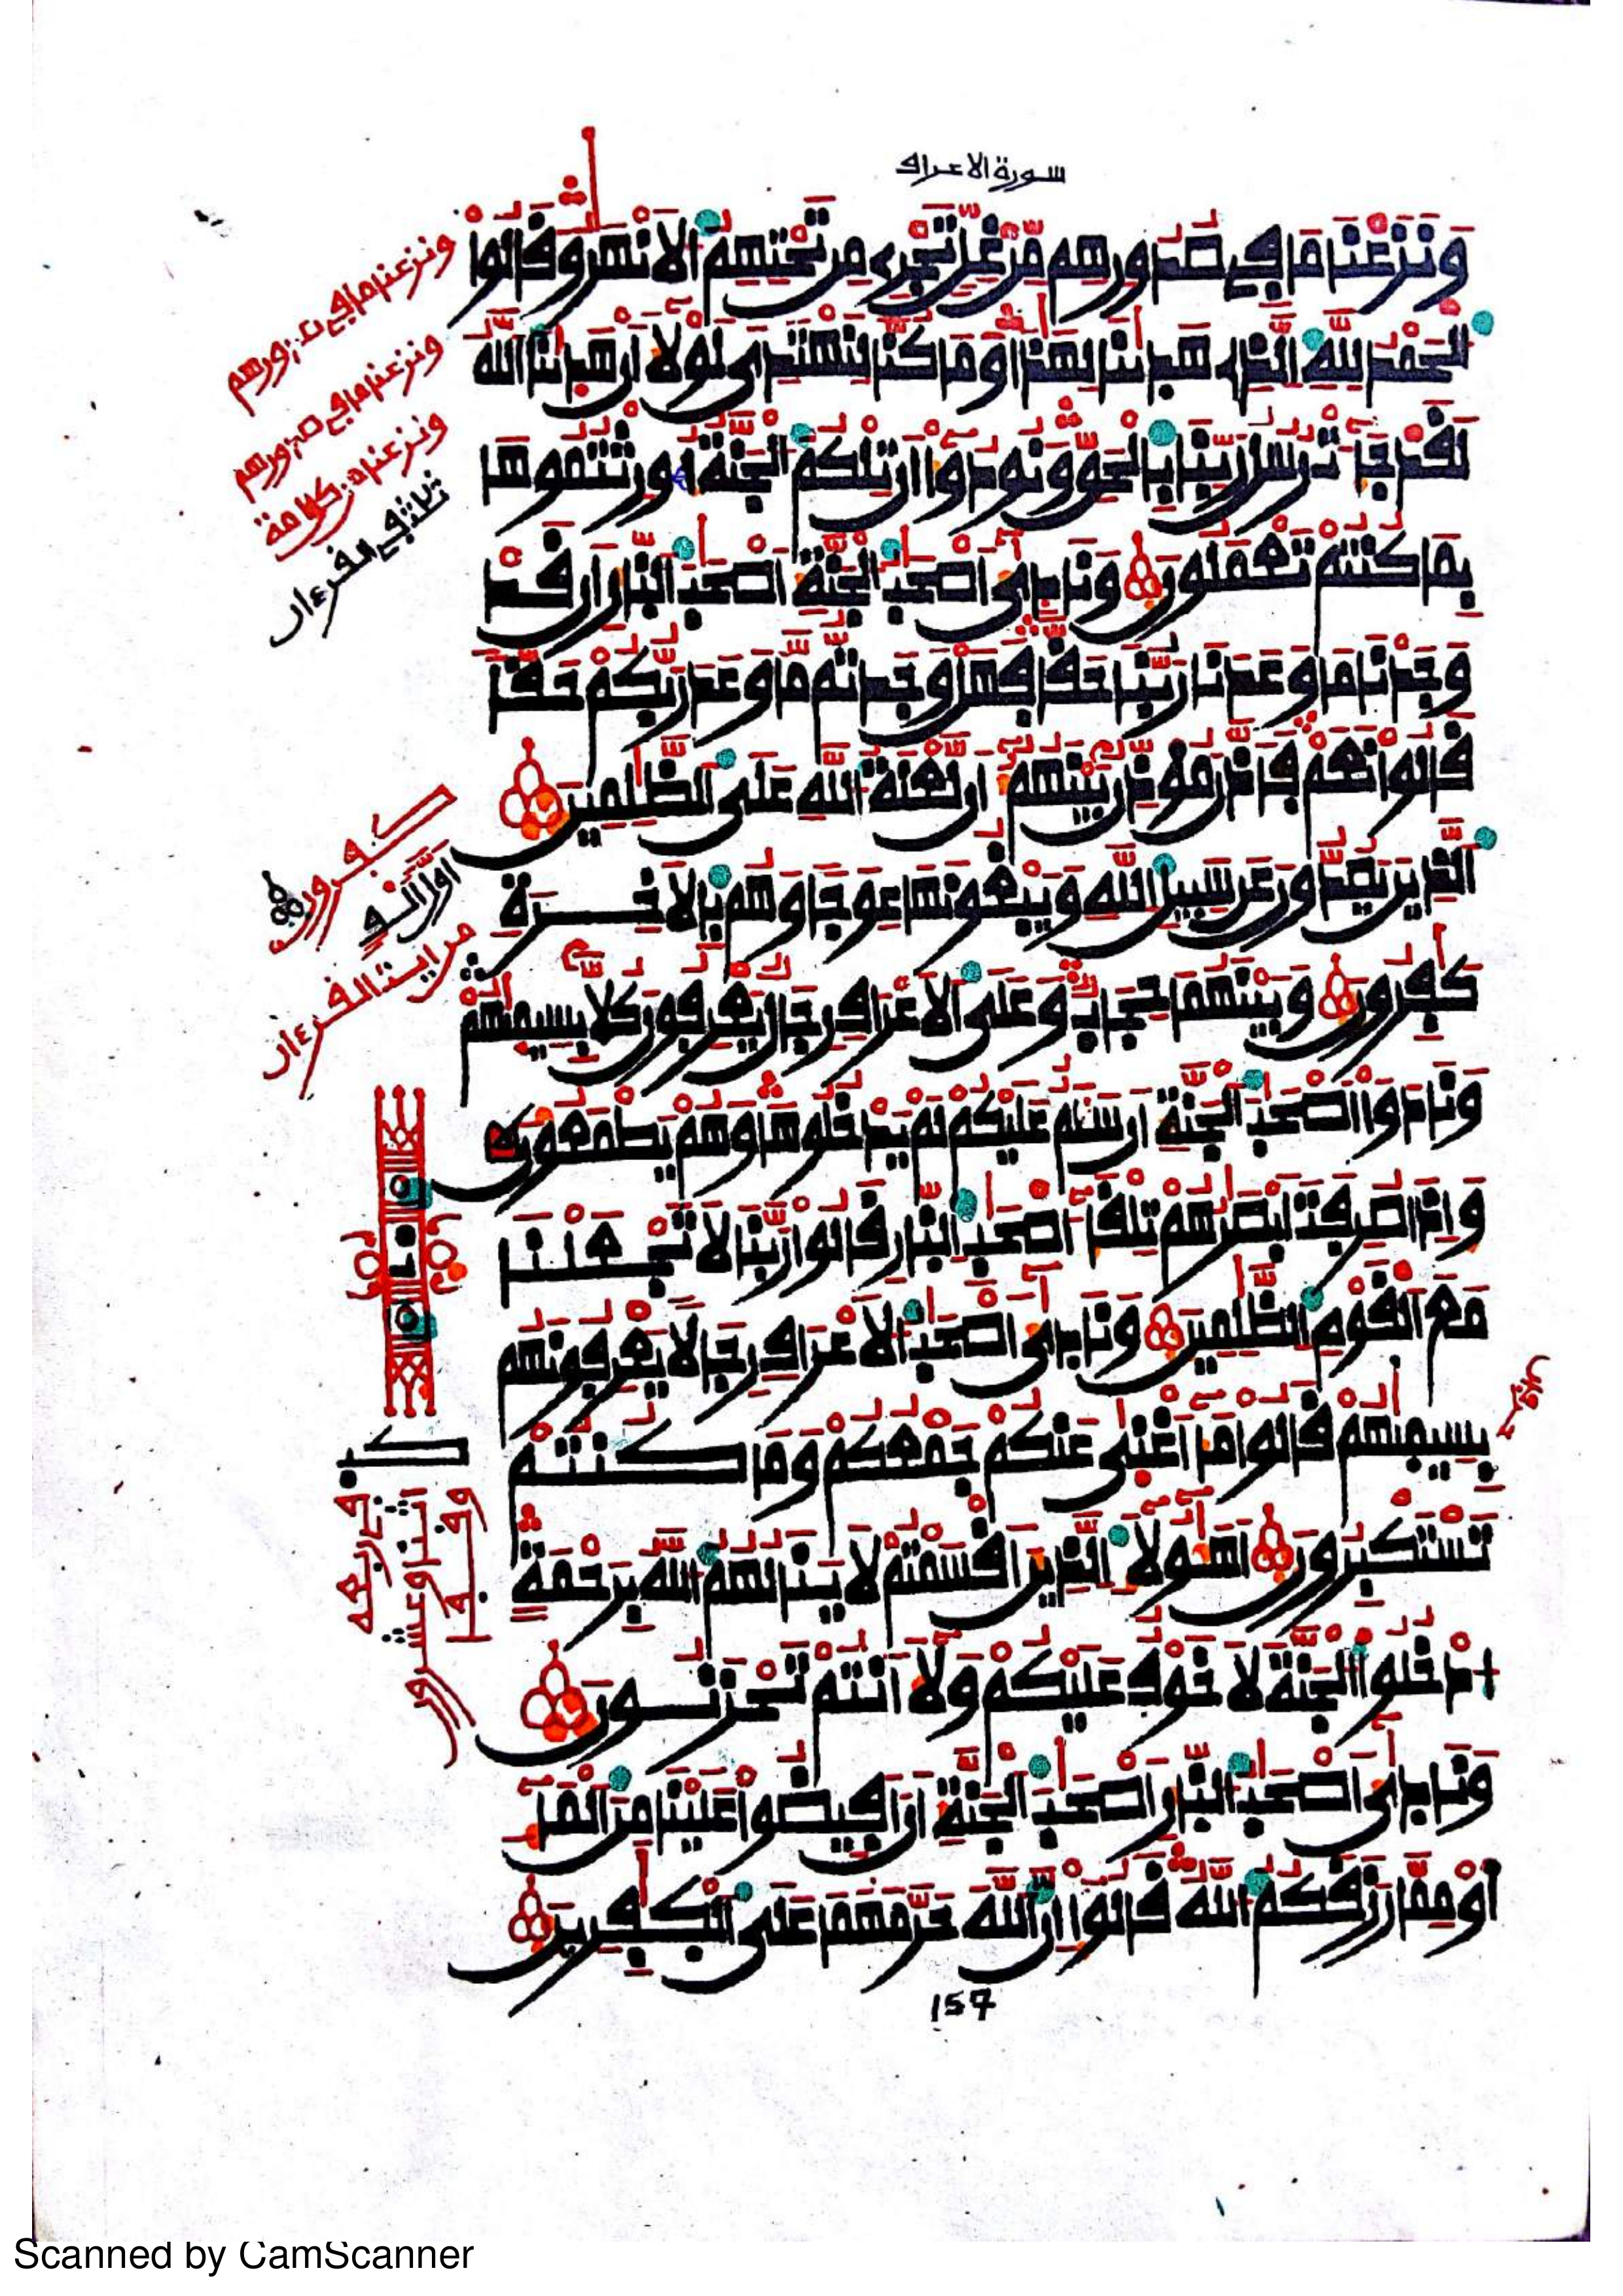 سورة الاعراف
وَنَزَعْنَا مَا فِي صُدُورِهِم مِّنْ غِلٍّ تَجْرِے مِن تَحْتِهِمُ الَانْهَٰرُ وَقَالُواْ
اُلْحَمْدُ لِلهِ اِلذِے هَدَىٰنَا لِهَٰذَا وَمَا كُنَّا لِنَهْتَدِيَ لَوْلَآ أَنْ هَدَىٰنَا اَللَّهُ
لَقَدْ جَآءَتْ رُسُلُ رَبِّنَا بِالْحَقِّ وَنُودُوٓاْ أَن تِلْكُمُ اُلْجَنَّةُ أُورِثْتُمُوهَا
بِمَا كُنتُمْ تَعْمَلُونَ وَنَادَىٰٓ أَصْحَٰبُ اُلْجَنَّةِ أَصْحَٰبَ اَلنّارِ أَن قَدْ
وَجَدْنَا مَا وَعَدَنَا رَبُّنَا حَقّاً فَهَلْ وَجَدتُّم مَّا وَعَدَ رَبُّكُمْ حَقّاً
قَالُواْ نَعَمْ فَأَذَّنَ مُؤَذِّنٌ بَيْنَهُمُۥٓ أَن لَّعْنَةُ اُللَّهِ عَلَى اَلظَّٰلِمِينَ
اَلذِينَ يَصُدُّونَ عَن سَبِيلِ اِللَّهِ وَيَبْغُونَهَا عِوَجاً وَهُم بِالَاخِرَةِ
كَٰفِرُونَ وَبَيْنَهُمَا حِجَابٌ وَعَلَى اَلَاعْرَافِ رِجَالٌ يَعْرِفُونَ كُلّاً بِسِيمَىٰهُمْ
وَنَادَوَاْ اَصْحَٰبَ اَلْجَنَّةِ أَن سَلَٰمٌ عَلَيْكُمْ لَمْ يَدْخُلُوهَا وَهُمْ يَطْمَعُونَ
وَإِذَا صُرِفَتَ اَبْصَٰرُهُمْ تِلْقَآءَ اَصْحَٰبِ اِلنّارِ قَالُواْ رَبَّنَا لَا تَجْعَلْنَا
مَعَ اَلْقَوْمِ اِلظَّٰلِمِينَ وَنَادَىٰٓ أَصْحَٰبُ اُلَاعْرَافِ رِجَالاً يَعْرِفُونَهُم
بِسِيمَىٰهُمْ قَالُواْ مَآ أَغْنَىٰ عَنكُمْ جَمْعُكُمْ وَمَا كُنتُمْ
تَسْتَكْبِرُونَ أَهَٰٓؤُلَآءِ اِلذِينَ أَقْسَمْتُمْ لَا يَنَالُهُمُ اُللَّهُ بِرَحْمَةٍ
اُدْخُلُواْ اُلْجَنَّةَ لَا خَوْفٌ عَلَيْكُمْ وَلَآ أَنتُمْ تَحْزَنُونَ
وَنَادَىٰٓ أَصْحَٰبُ اُلنّارِ أَصْحَٰبَ اَلْجَنَّةِ أَنَ اَفِيضُواْ عَلَيْنَا مِنَ اَلْمَآءِ
اَوْ مِمَّا رَزَقَكُمُ اُللَّهُ قَالُوٓاْ إِنَّ اَللَّهَ حَرَّمَهُمَا عَلَى اَلْكَٰفِرِينَ
157
ونزعنا ما في صدورهم
ونزعنا ما في صدورهم
ونزعنا من كل امة
ثلث في القرءان
كفرون
من ايت القرءان
Scanned by CamScanner